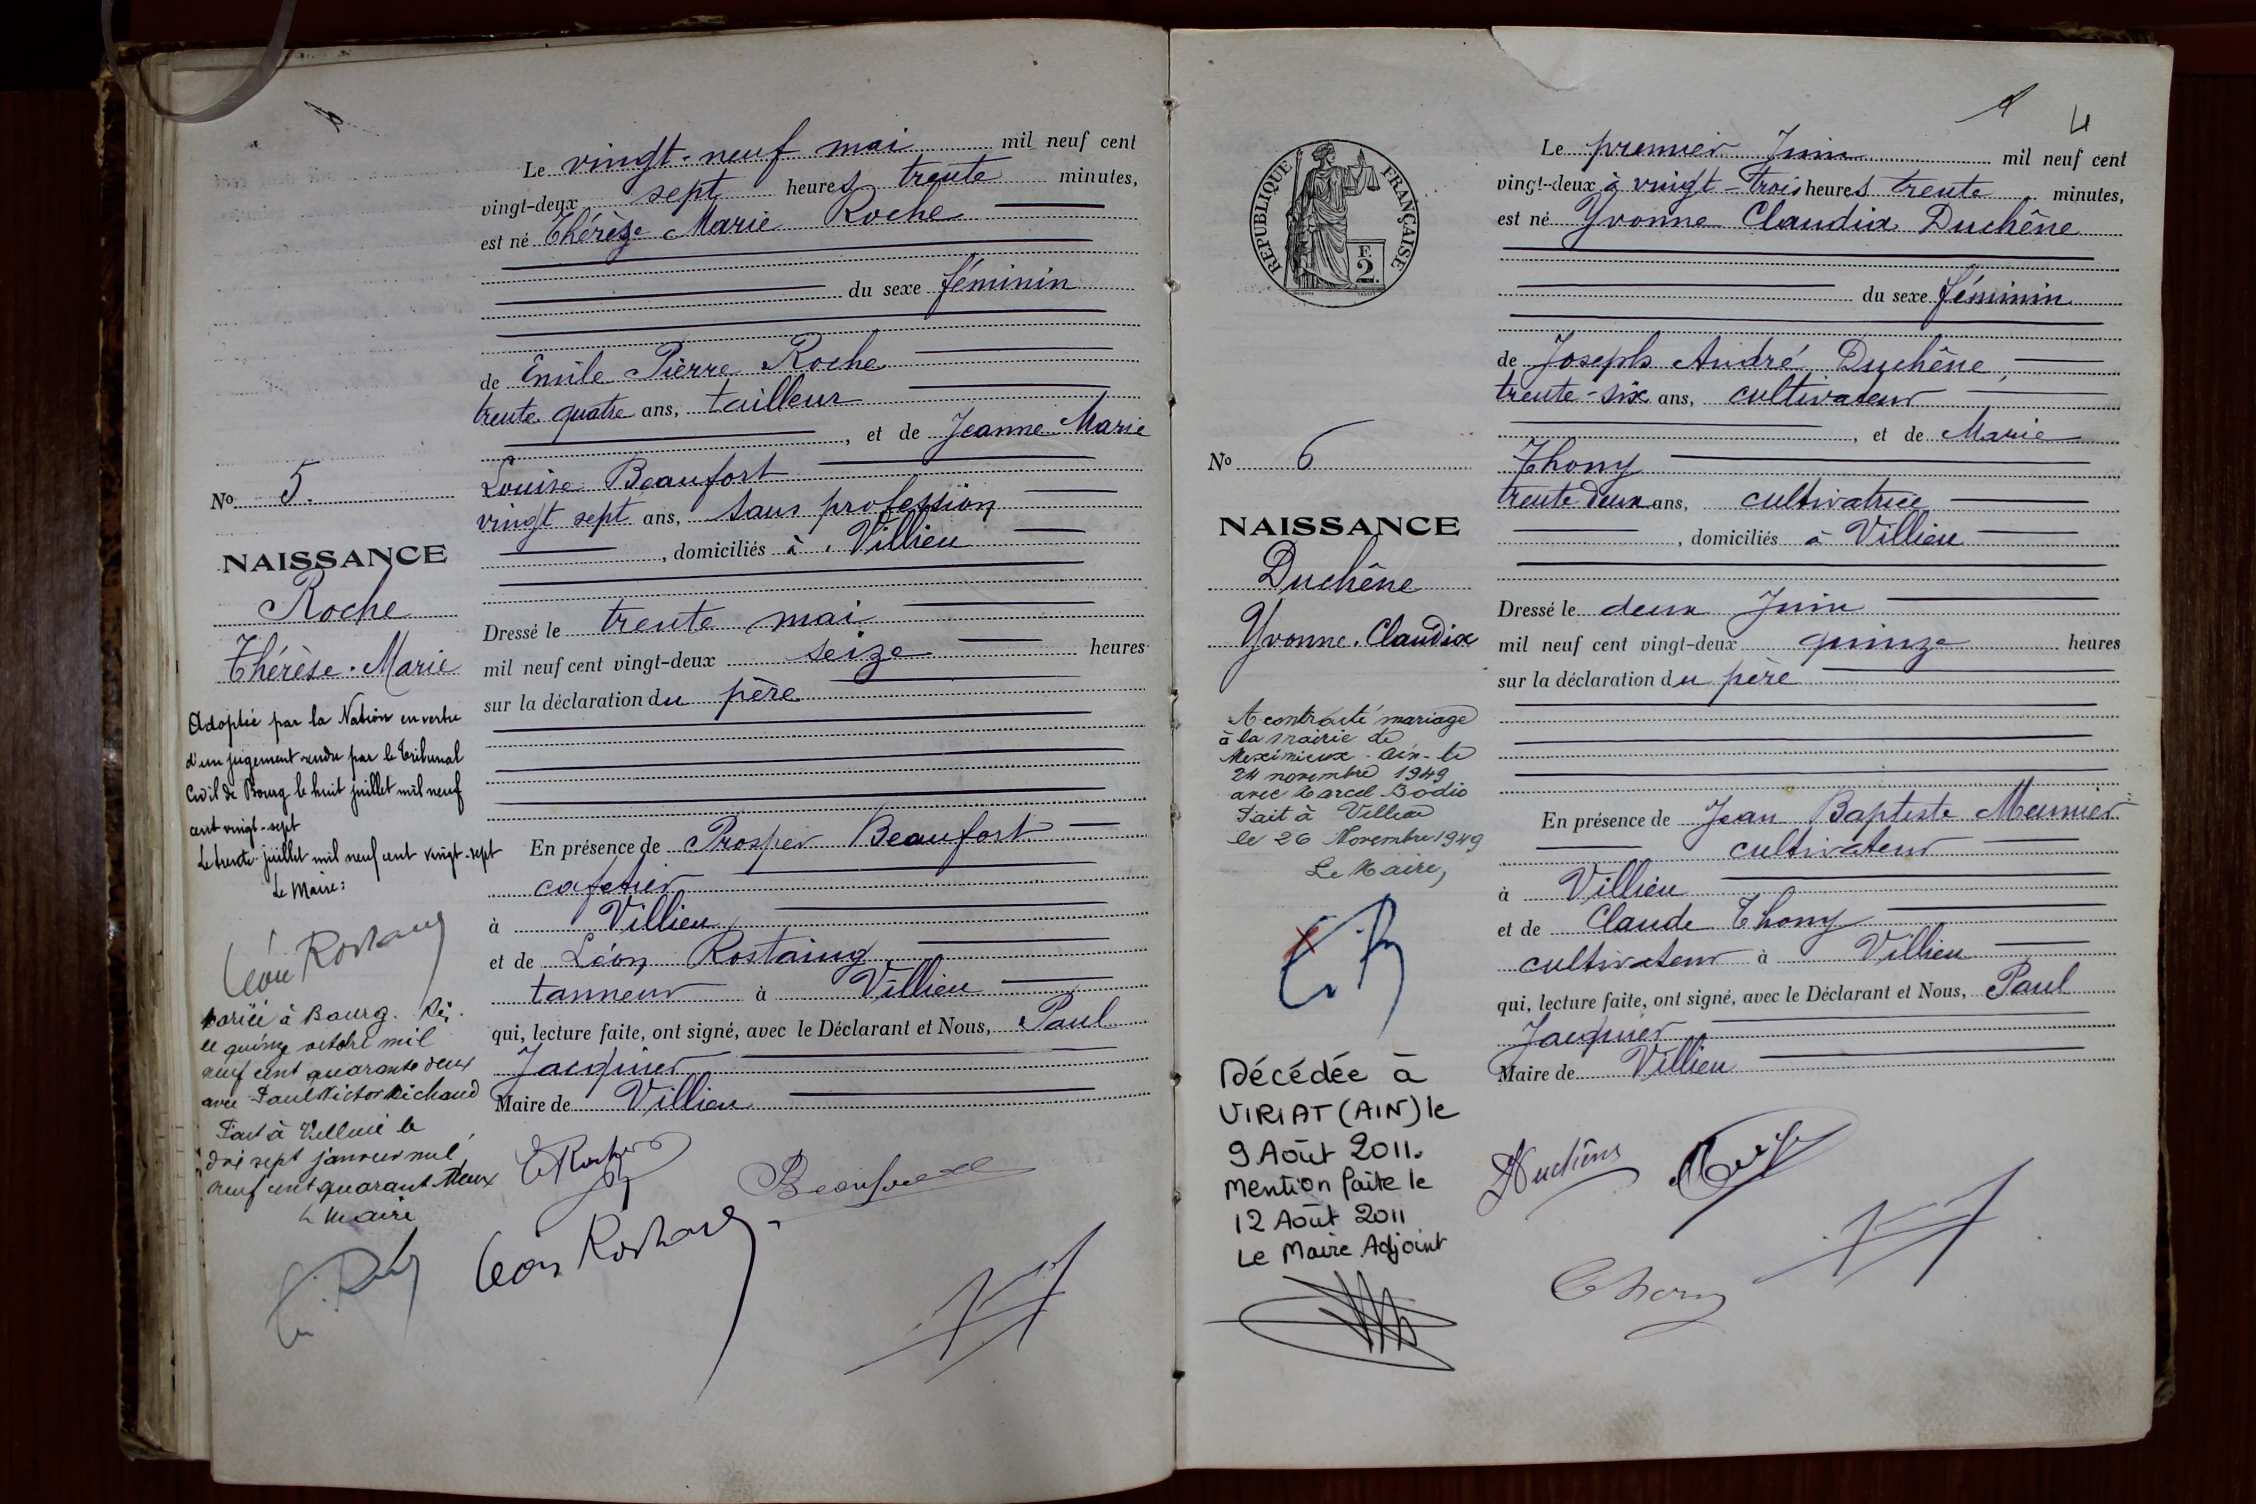 Le vingt-neuf mai mil neuf cent
vingt-deux sept heures trente minutes,
est né Thérèse Marie Roche
du sexe féminin
de Emile Pierre Roche
trente quatre ans, tailleur
, et de Jeanne Marie
Louise Beaufort
vingt sept ans, sans profession
, domiciliés à Villieu
Dressé le trente mai
mil neuf cent vingt-deux seize heures
sur la déclaration du père
En présence de Prosper Beaufort
cafetier
à Villieu
et de Léon Rostaing
tanneur à Villieu
qui, lecture faite, ont signé, avec le Déclarant et Nous, Paul
Jacquier
Maire de Villieu
No 5.
NAISSANCE
Roche
Thérèse-Marie
Adoptée par la Nation en vertu
d'un jugement rendu par le Tribunal
Civil de Bourg le huit juillet mil neuf
cent vingt-sept
Le trente juillet mil neuf cent vingt-sept
Le Maire:
Léon Rostaing
Mariée à Bourg.
le quinze octobre mil
neuf cent quarante deux
avec Paul Victor Michaud
Fait à Villieu le
dix sept janvier mil
neuf cent quarante
Le Maire
Léon Rostaing
4
REPUBLIQUE FRANÇAISE
F.
2.
Le premier Juin mil neuf cent
vingt-deux à vingt-trois heures trente minutes,
est né Yvonne Claudia Duchêne
du sexe féminin
de Joseph André Duchêne,
trente-six ans, cultivateur
, et de Marie
Thony
trente deux ans, cultivatrice
, domiciliés à Villieu
Dressé le deux Juin
mil neuf cent vingt-deux quinze heures
sur la déclaration du père
En présence de Jean Baptiste Meunier
cultivateur
à Villieu
et de Claude Thony
cultivateur à Villieu
qui, lecture faite, ont signé, avec le Déclarant et Nous, Paul
Jacquier
Maire de Villieu
No 6
NAISSANCE
Duchêne
Yvonne-Claudia
A contracté mariage
à la mairie de
Meximieux - Ain - le
24 novembre 1949
avec Marcel Bodio
Fait à Villieu
le 26 Novembre 1949
Le Maire,
Décédée à
VIRIAT (AIN) le
9 Août 2011.
Mention faite le
12 Août 2011
Le Maire Adjoint
Duchêne
Thony